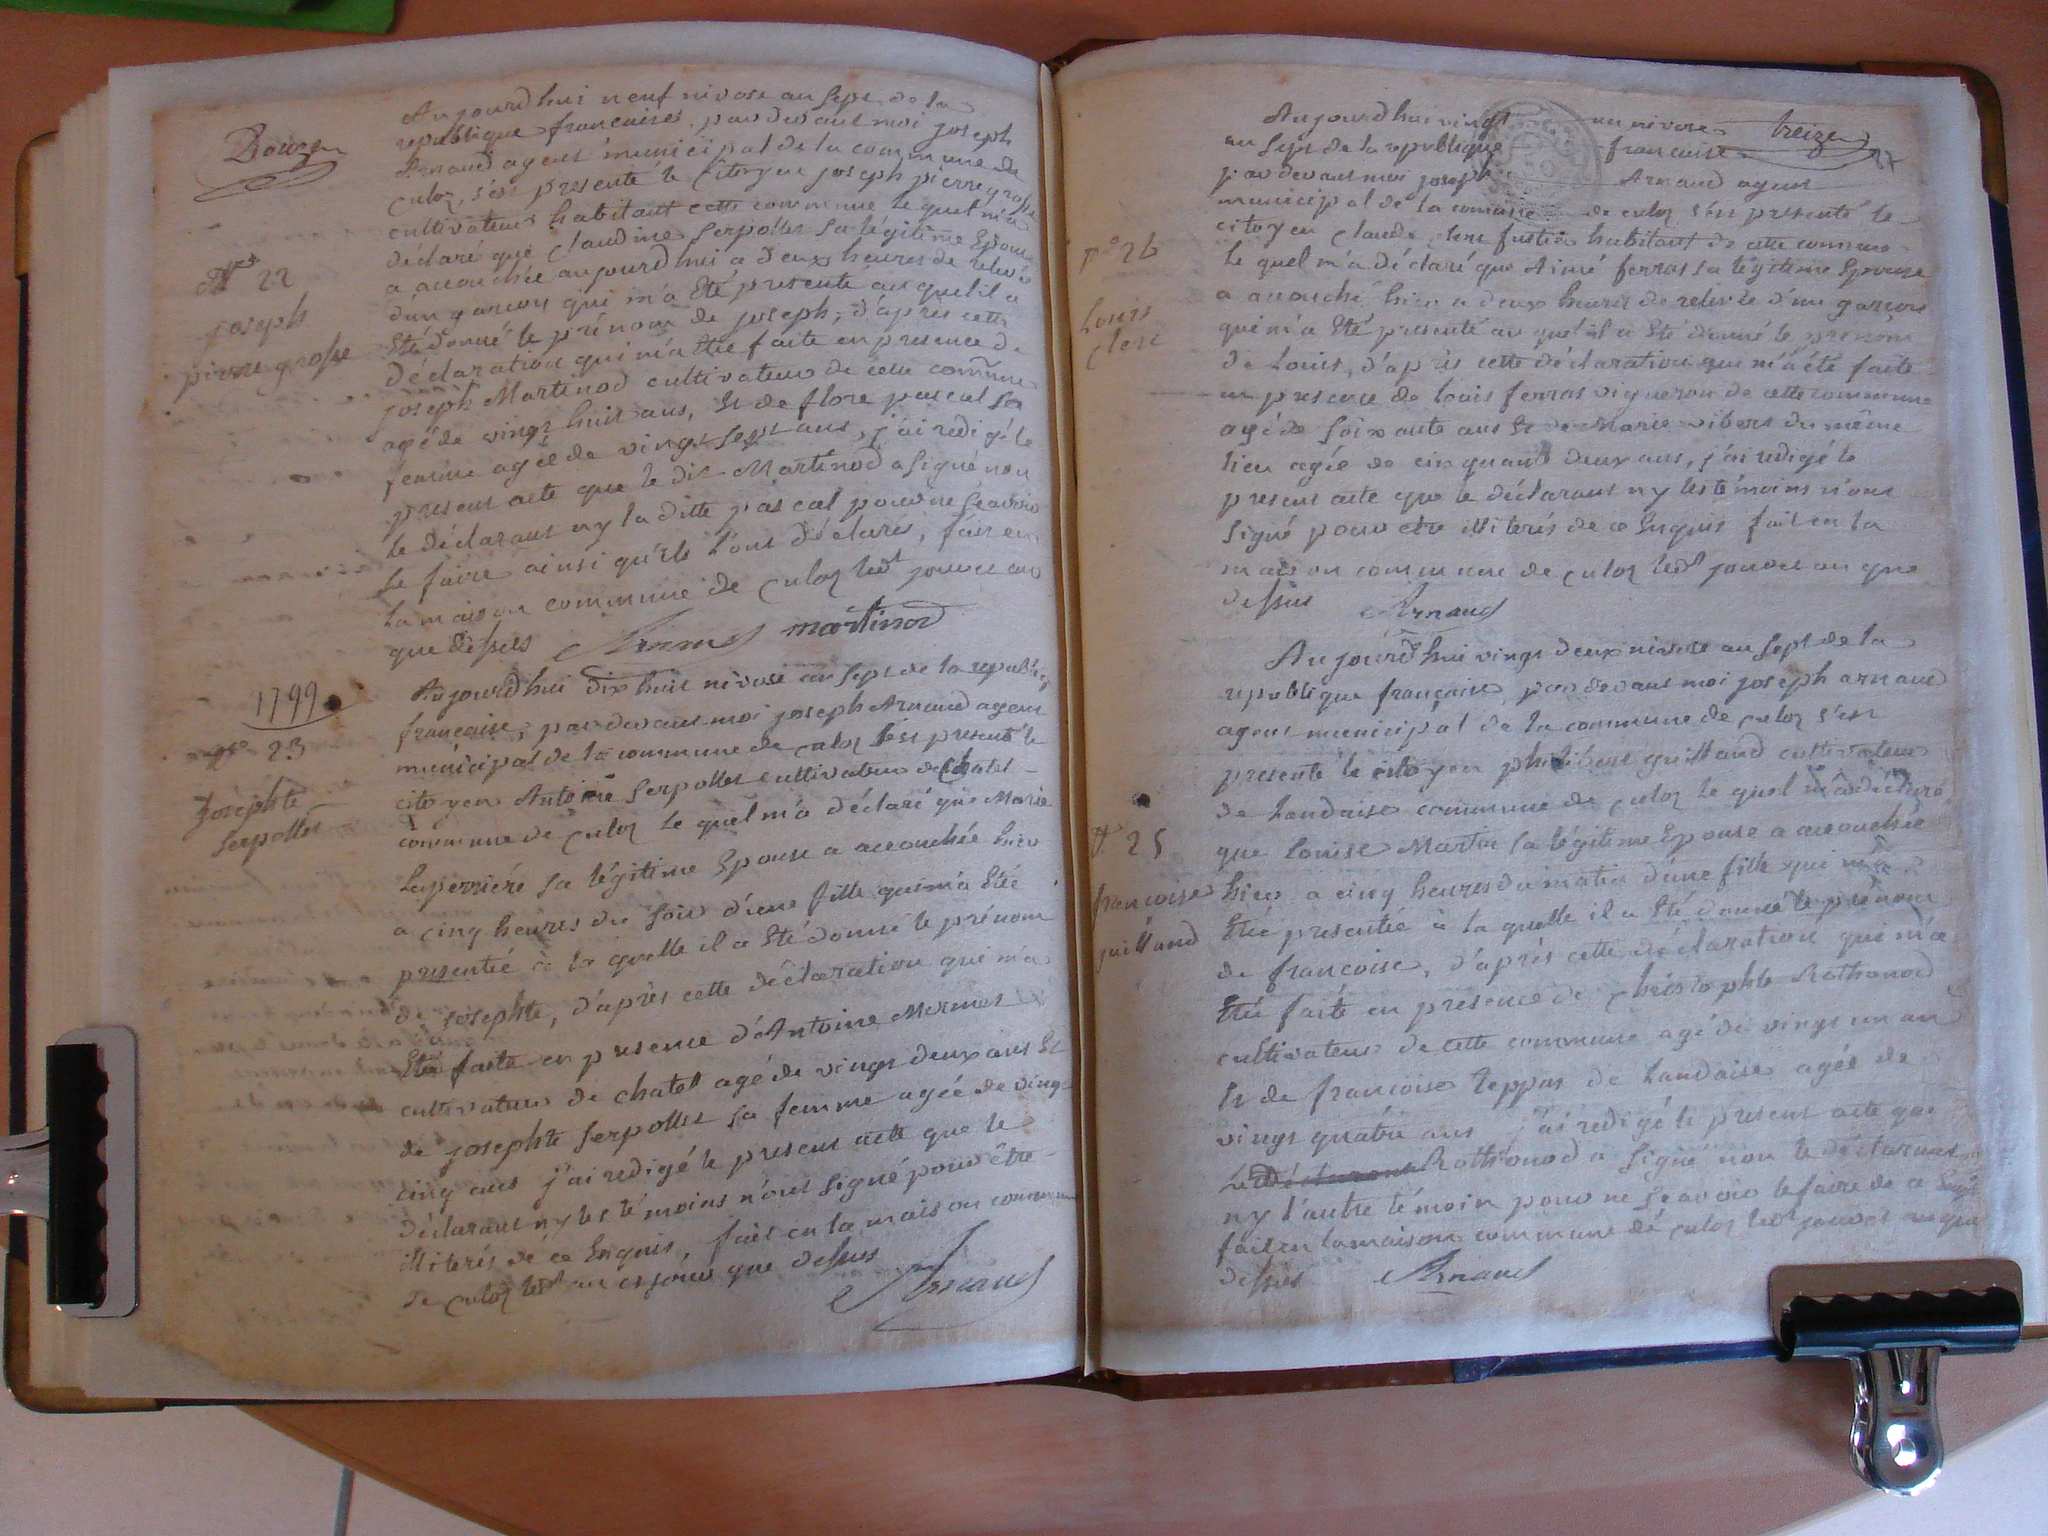 Douze
Aujourd'hui neuf nivose an sept de la
republique francaise, pardevant moi joseph
Arnaud agent municipal de la commune de
culoz, s'est presenté le citoyen joseph pierre grosse
cultivateur habitant cette commune le quel m'a
déclaré que claudine serpollet sa légitime Epouse
a accouchée aujourd'hui a deux heures de relevée
d'un garcon qui m'a Eté présenté au quel il a
Eté donné le prénom de joseph, d'après cette
déclaration qui m'a Eté faite en presence de
joseph Martinod cultivateur de cette commune
agé de vingt huit ans, Et de flore pascal sa
femme agée de vingt sept ans, j'ai redigé le
present acte que le dit Martinod a signé non
le déclarant ny la ditte pascal pour ne sçavoir
le faire ainsi qu'ils l'ont déclaré, fait en
la maison commune de culoz led^t jour et an
que dessus Arnaud martinod
N° 22
joseph
pierre grosse
1799
N° 23
Josephte
serpollet
Aujourd'hui dix huit nivose an sept de la republique
francaise, pardevant moi joseph Arnaud agent
municipal de la commune de culoz s'est presenté le
citoyen Antoine serpollet cultivateur de chatel
commune de culoz le quel m'a déclaré que Marie
Laperriére sa légitime Epouse a accouchée hier
a cinq heures du soir d'une fille qui m'a Eté
presentée à la quelle il a Eté donné le prénom
de josephte, d'après cette déclaration qui m'a
Eté faite en presence d'Antoine Mermet
cultivateur de chatel agé de vingt deux ans Et
de josephte serpollet sa femme agée de vingt
cinq ans j'ai redigé le present acte que le
déclarant ny les témoins n'ont signé pour être
illiterés de ce Enquis, fait en la maison commune
de culoz led^t an et jour que dessus
Arnaud
treize
Aujourd'hui vingt un nivose
an sept de la republique francaise
pardevant moi joseph Arnaud agent
municipal de la comune de culoz s'est presenté le
citoyen claude clerc habitant de cette commune
le quel m'a déclaré que Aimé ferras sa légitime Epouse
a accouché hier a deux heures de relevée d'un garcon
qui m'a Eté presenté au quel il a Eté donné le prenom
de Louis, d'après cette déclaration qui m'a été faite
en presence de louis ferras vigneron de cette commune
agé de soixante ans Et de Marie vibert du même
lieu agée de cinquante deux ans, j'ai redigé le
present acte que le déclarant ny les témoins n'ont
signé pour etre illiterés de ce Enquis fait en la
maison commune de culoz led^t jour et an que
dessus Arnaud
N° 26
Louis
clerc
Aujourd'hui vingt deux nivose an sept de la
republique française, pardevant moi joseph arnaud
agent municipal de la commune de culoz s'est
presenté le citoyen philibert guilland cultivateur
de Landaise commune de culoz le quel m'a déclaré
que Louise Martin sa légitime Epouse a accouchée
hier a cinq heures du matin d'une fille qui m'a
Eté presentée à la quelle il a Eté donné le prénom
de francoise, d'après cette déclaration qui m'a
Eté faite en presence de christophle Rothonod
cultivateur de cette commune agé de vingt un an
Et de francoise teppas de Landaise agée de
vingt quatre ans j'ai redigé le present acte que
Le déclarant Rothonod a signé non le déclarant
ny l'autre témoin pour ne sçavoir le faire de ce Enquis
fait en la maison commune de culoz led^t jour et an que
dessus Arnaud
N° 25
francoise
guilland